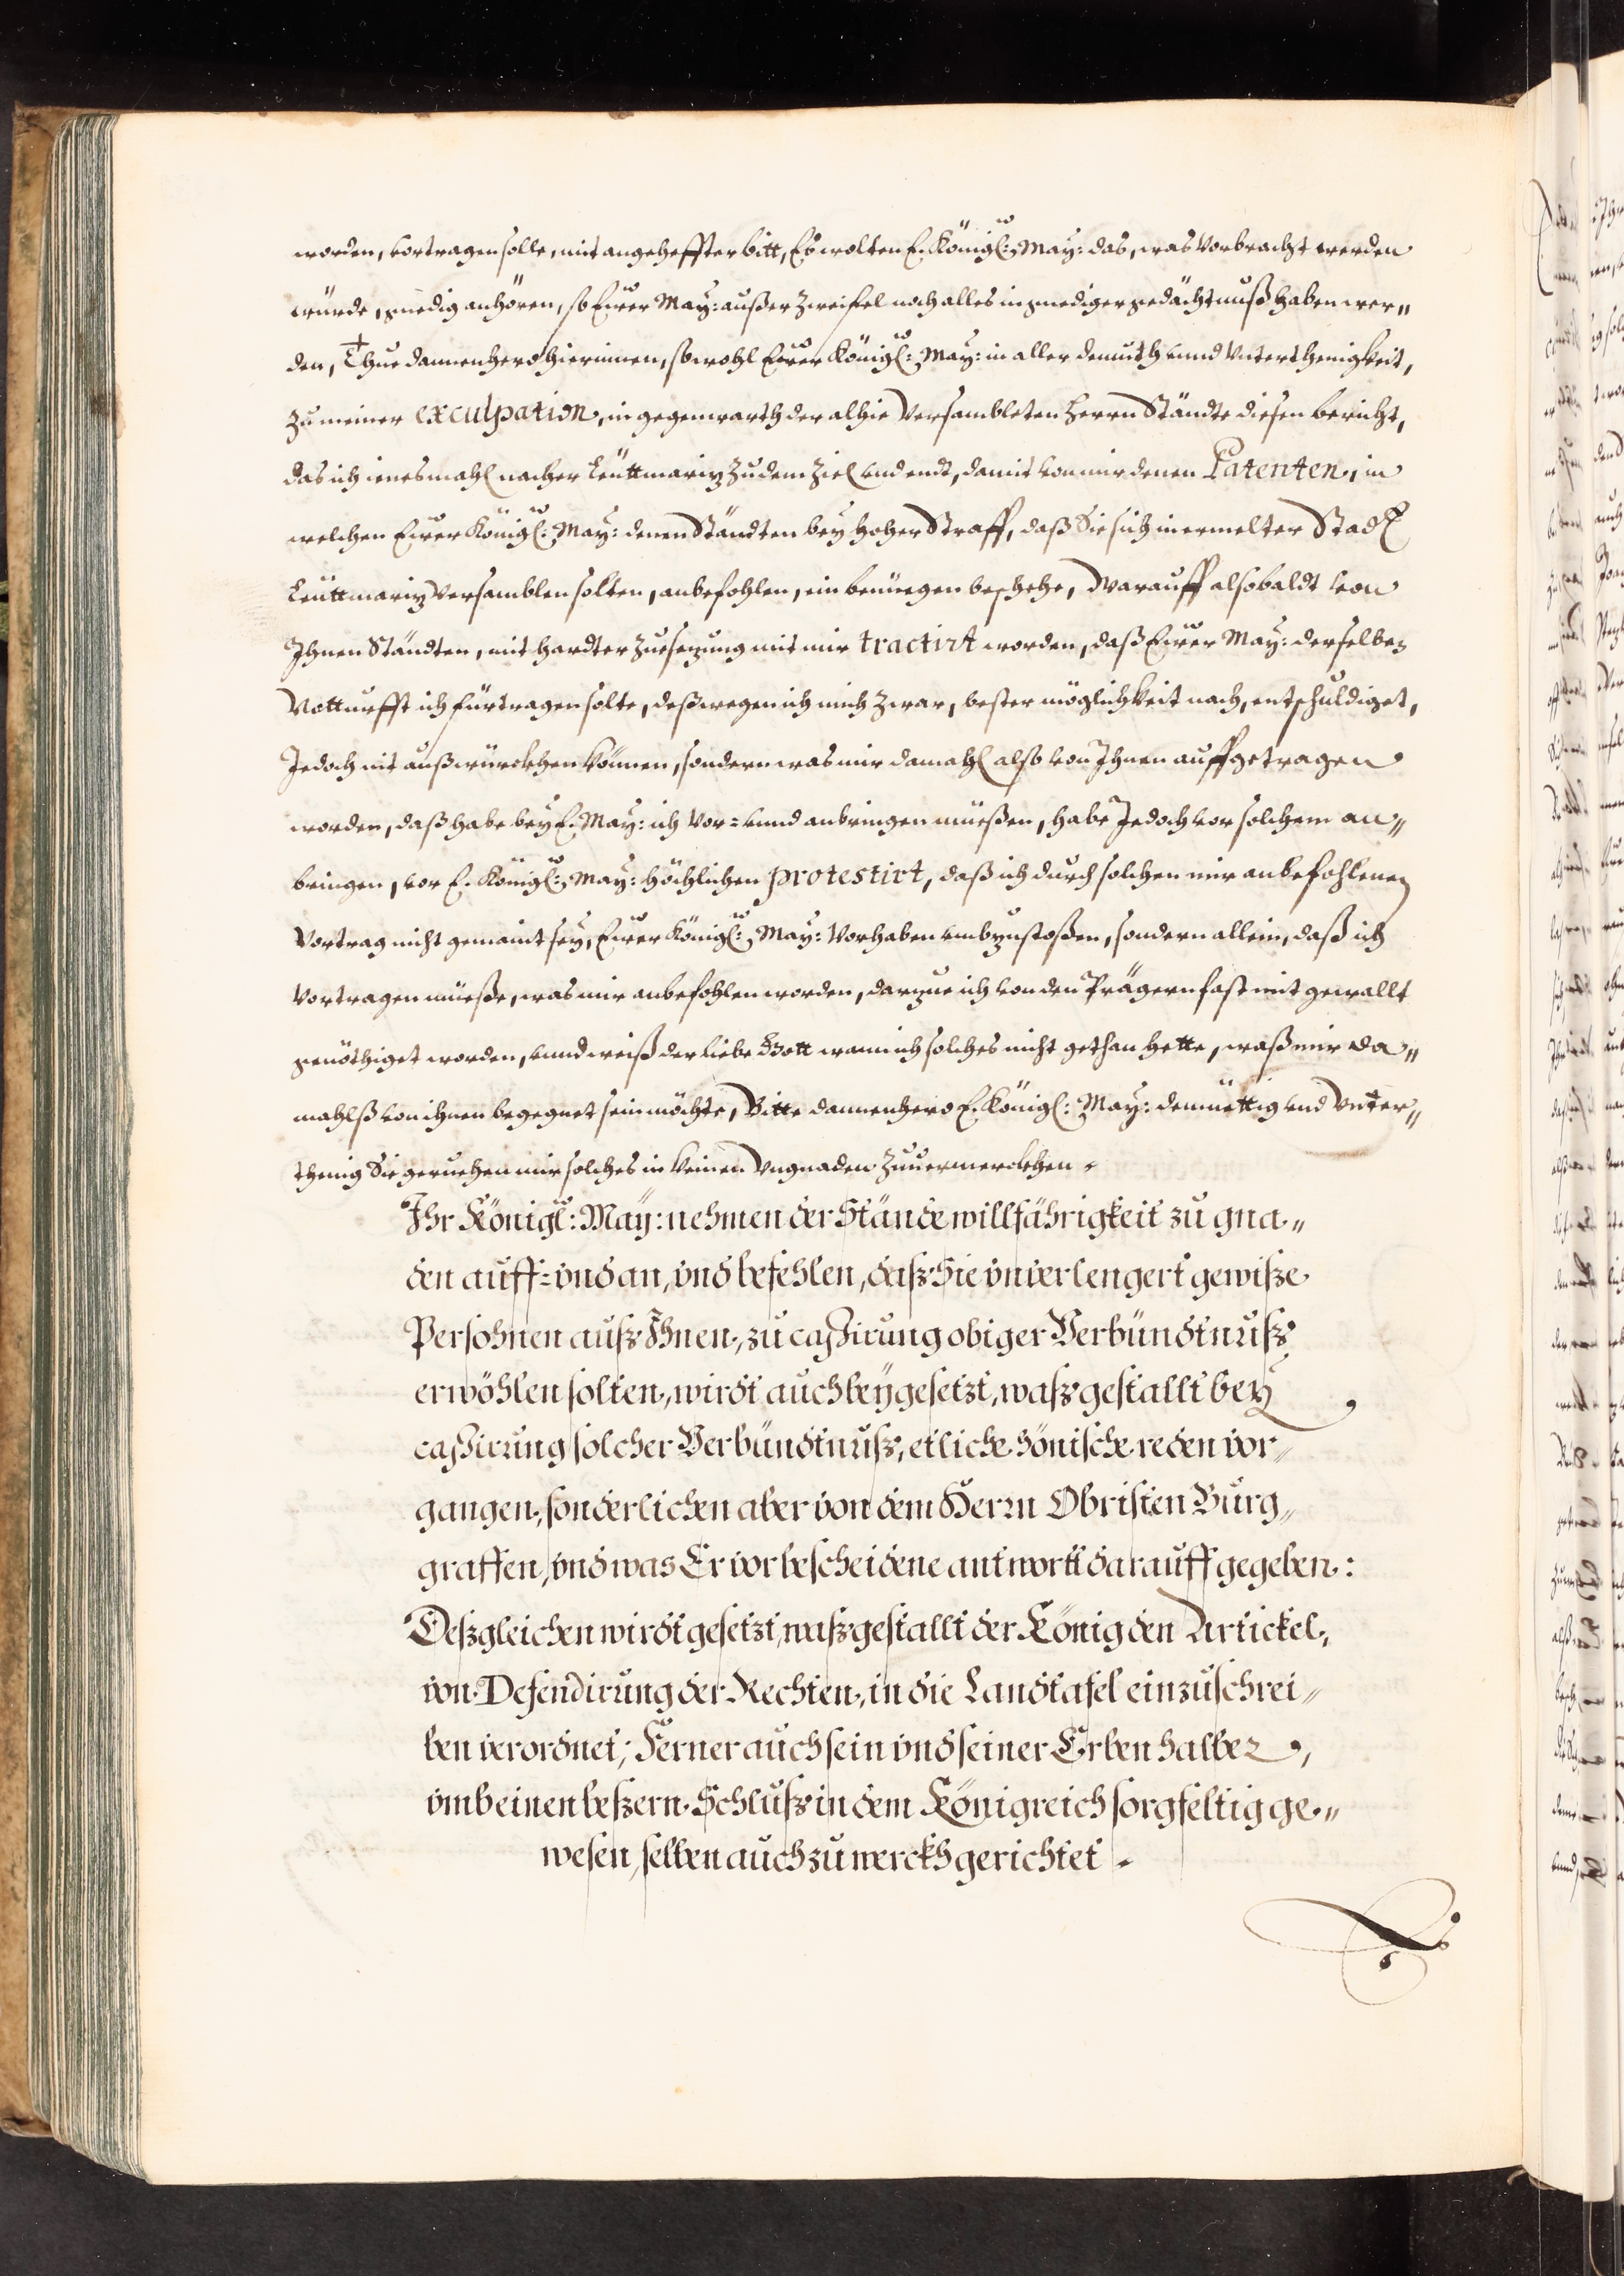 worden, vortragen solle, mit angeheffter bitt, Es wolten E. Königl: May: das, was Vorbracht werden
würde, gnedig anhören, so Eurer May: außer Zweifel noch alles in gnediger gedächtnuß haben wer„
den, Thue dannenhero hierinnen, sowohl Eurer Königl: May: in aller demuth vnnd Vnterthenigkeit,
Zu meiner exculpation, in gegenwarth der alhie Versambleten Herrn Ständte diesen bericht,
das ich ienesmahl nacher Leüttmariz Zu dem Ziel vnd endt, damit von mir denen Patenten, in
welchen Eurer Königl: May: denen Ständten bey hoher Straff, daß Sie sich in ermelter Stadt
Leüttmariz Versamblen solten, anbefohlen, ein benüegen beschehe, Warauff alsobaldt von
Ihnen Ständten, mit hardter Zuesezung mit mir tractirt worden, daß Eurer May: derselben
Notturfft ich fürtragen solte, deßwegen ich mich Zwar, bester möglichkeit nach, entschuldiget,
Jedoch nit außwürckhen können, sondern was mir damahl also von Ihnen auffgetragen
worden, daß habe bey E. May: ich Vor= vnnd anbringen müeßen, habe Jedoch vor solchem an„
bringen, vor E. Königl: May: höchlichen protestirt, daß ich durch solchen mir anbefohlenen
Vortrag nicht gemaint sey, Eurer Königl: May: Vorhaben vmbzustoßen, sondern allein, daß ich
Vortragen müeße, was mir anbefohlen worden, darzue ich von den Prägern fast mit gewallt
genöthiget worden, vnnd weiß der liebe Gott wann ich solches nicht gethan hette, waß mir da„
mahlß von ihnen begegnet sein möchte, Bitte dannenhero E. Königl: May: demüettig vnd Vnter„
thenig Sie geruehen mir solches in keinen Vngnaden Zuuermerckhen.
Ihr Königl: May: nehmen der Stände willfährigkeit zu gna„
den auff= vnd an, vnd befehlen, daß Sie vnverlengert gewiße
Persohnen auß Ihnen, zu caßirung obiger Verbündtnuß
erwöhlen solten, wirdt auch beygesetzt, waß gestallt bey
caßirung solcher Verbündtnuß, etliche hönische reden vor„
gangen, sonderlichen aber von dem Herrn Obristen Burg„
graffen, vnd was Er vor bescheidene antwortt darauff gegeben:
Deßgleichen wirdt gesetzt, waß gestallt der König den Artickel,
von Defendirung der Rechten, in die Landtafel einzuschrei„
ben verordnet; Ferner auch sein vnd seiner Erben halber,
vmb einen beßern Schluß in dem Königreich sorgfeltig ge„
wesen, selben auch zu werckh gerichtet.